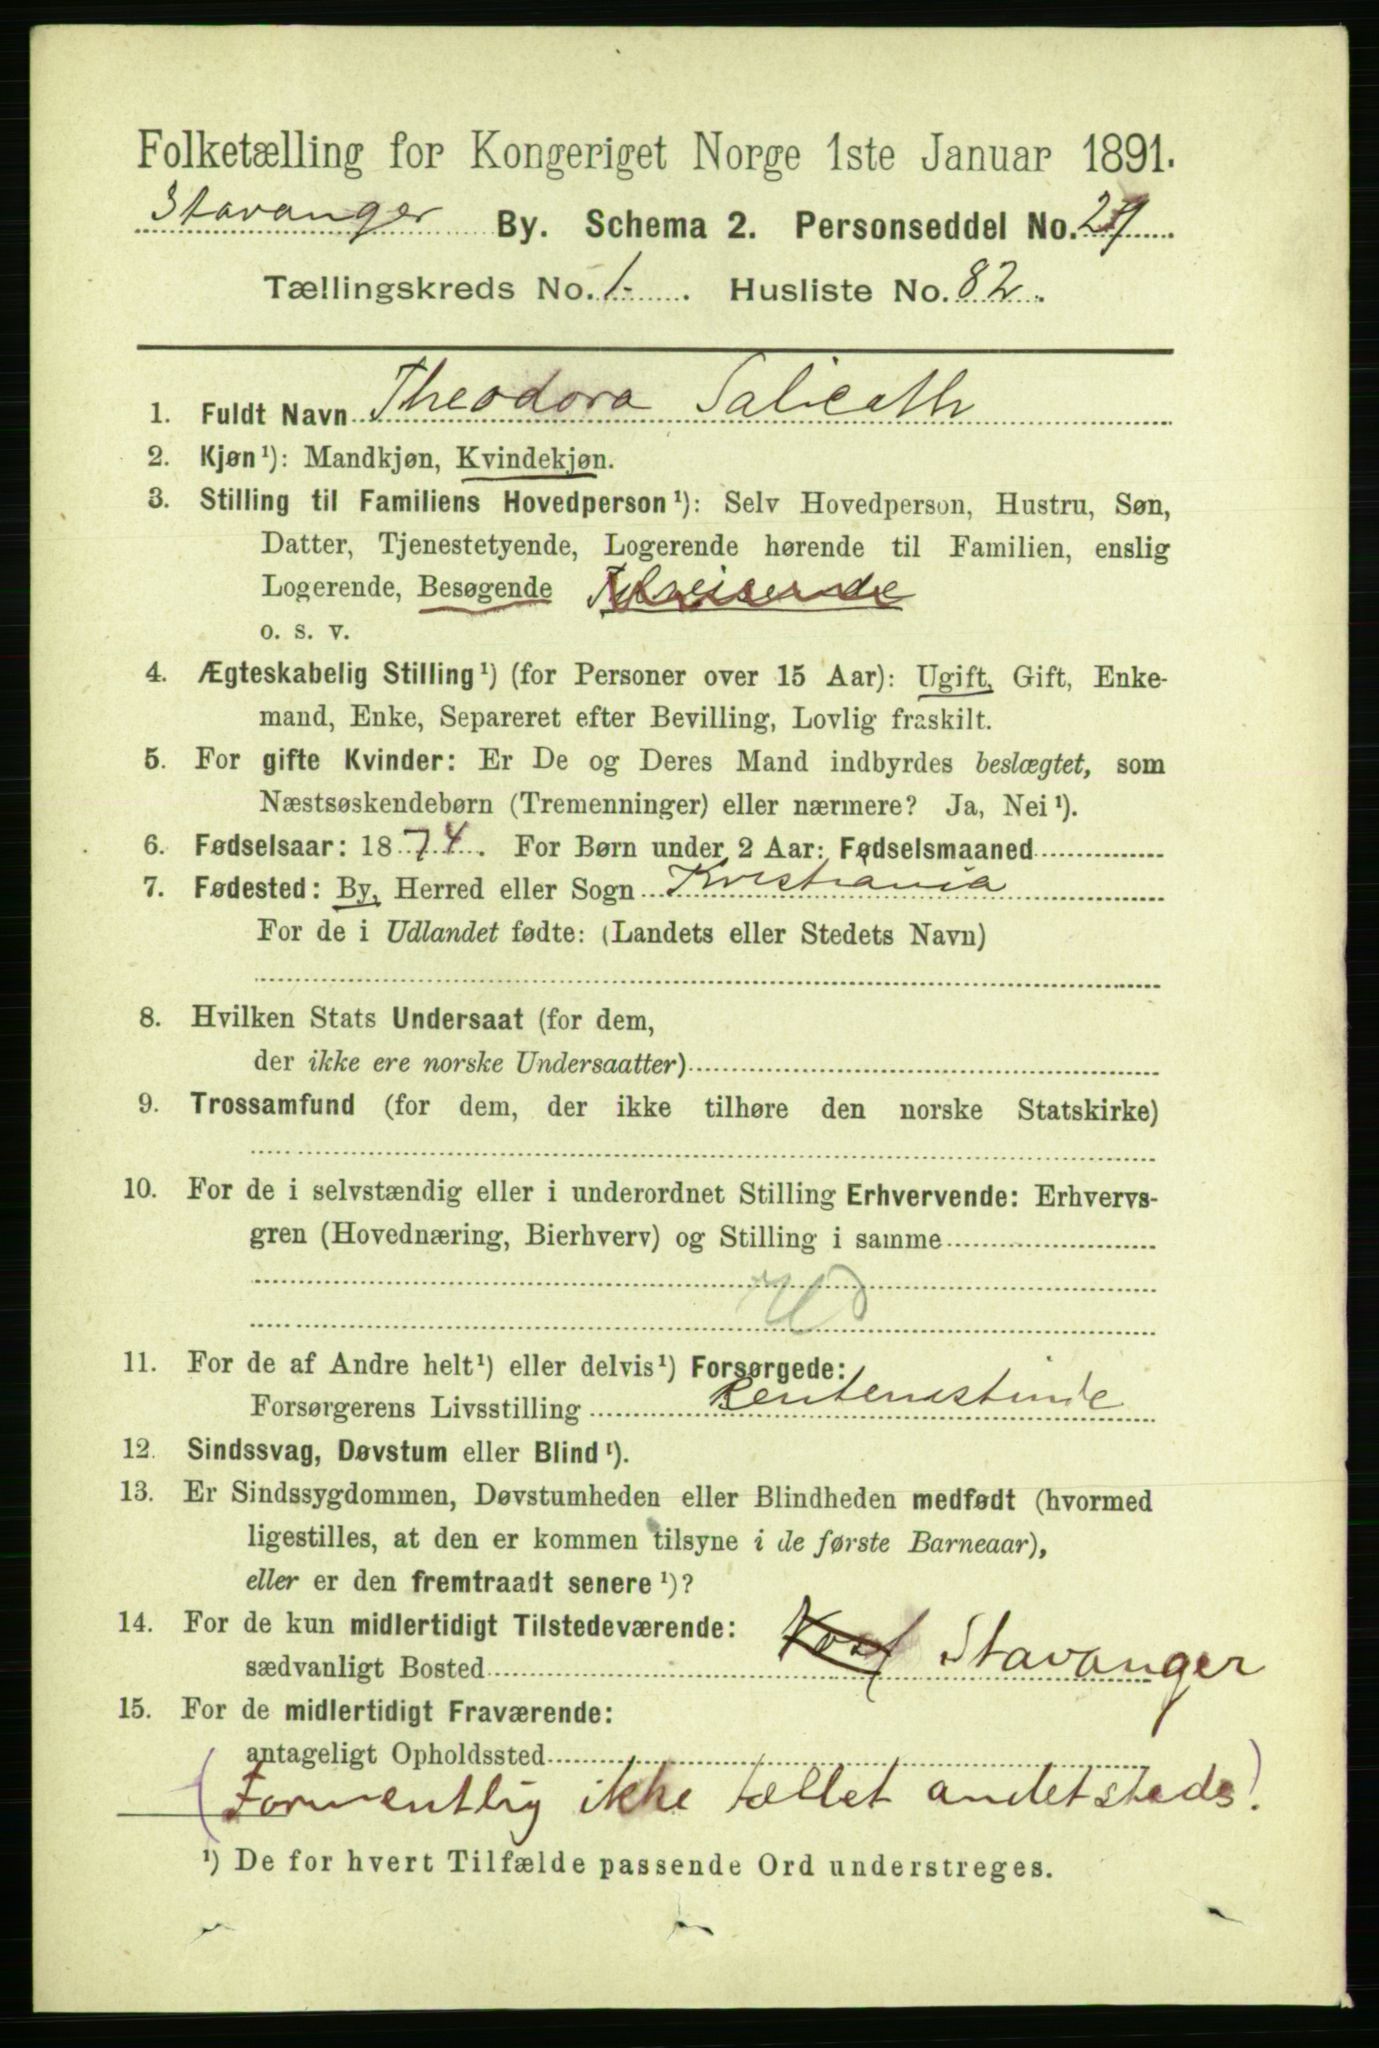 Folketælling for Kongeriget Norge 1ste Januar 1891.
Stavanger By. Schema 2. Personseddel No. 29
Tællingskreds No. 1. Husliste No. 82.
1. Fuldt Navn Theodora Salicath
2. Kjøn¹): Mandkjøn, Kvindekjøn.
3. Stilling til Familiens Hovedperson¹): Selv Hovedperson, Hustru, Søn,
Datter, Tjenestetyende, Logerende hørende til Familien, enslig
Logerende, Besøgende
o. s. v.
4. Ægteskabelig Stilling¹) (for Personer over 15 Aar): Ugift, Gift, Enke-
mand, Enke, Separeret efter Bevilling, Lovlig fraskilt.
5. For gifte Kvinder: Er De og Deres Mand indbyrdes beslægtet, som
Næstsøskendebørn (Tremenninger) eller nærmere? Ja, Nei¹).
6. Fødselsaar: 1874. For Børn under 2 Aar: Fødselsmaaned
7. Fødested: By, Herred eller Sogn Kristiania
For de i Udlandet fødte: (Landets eller Stedets Navn)
8. Hvilken Stats Undersaat (for dem,
der ikke ere norske Undersaatter)
9. Trossamfund (for dem, der ikke tilhøre den norske Statskirke)
10. For de i selvstændig eller i underordnet Stilling Erhvervende: Erhvervs-
gren (Hovednæring, Bierhverv) og Stilling i samme
11. For de af Andre helt¹) eller delvis¹) Forsørgede:
Forsørgerens Livsstilling
12. Sindssvag, Døvstum eller Blind¹).
13. Er Sindssygdommen, Døvstumheden eller Blindheden medfødt (hvormed
ligestilles, at den er kommen tilsyne i de første Barneaar),
eller er den fremtraadt senere¹)?
14. For de kun midlertidigt Tilstedeværende:
sædvanligt Bosted Stavanger
15. For de midlertidigt Fraværende:
antageligt Opholdssted
(Formentlig ikke tællet andetsteds!)
¹) De for hvert Tilfælde passende Ord understreges.